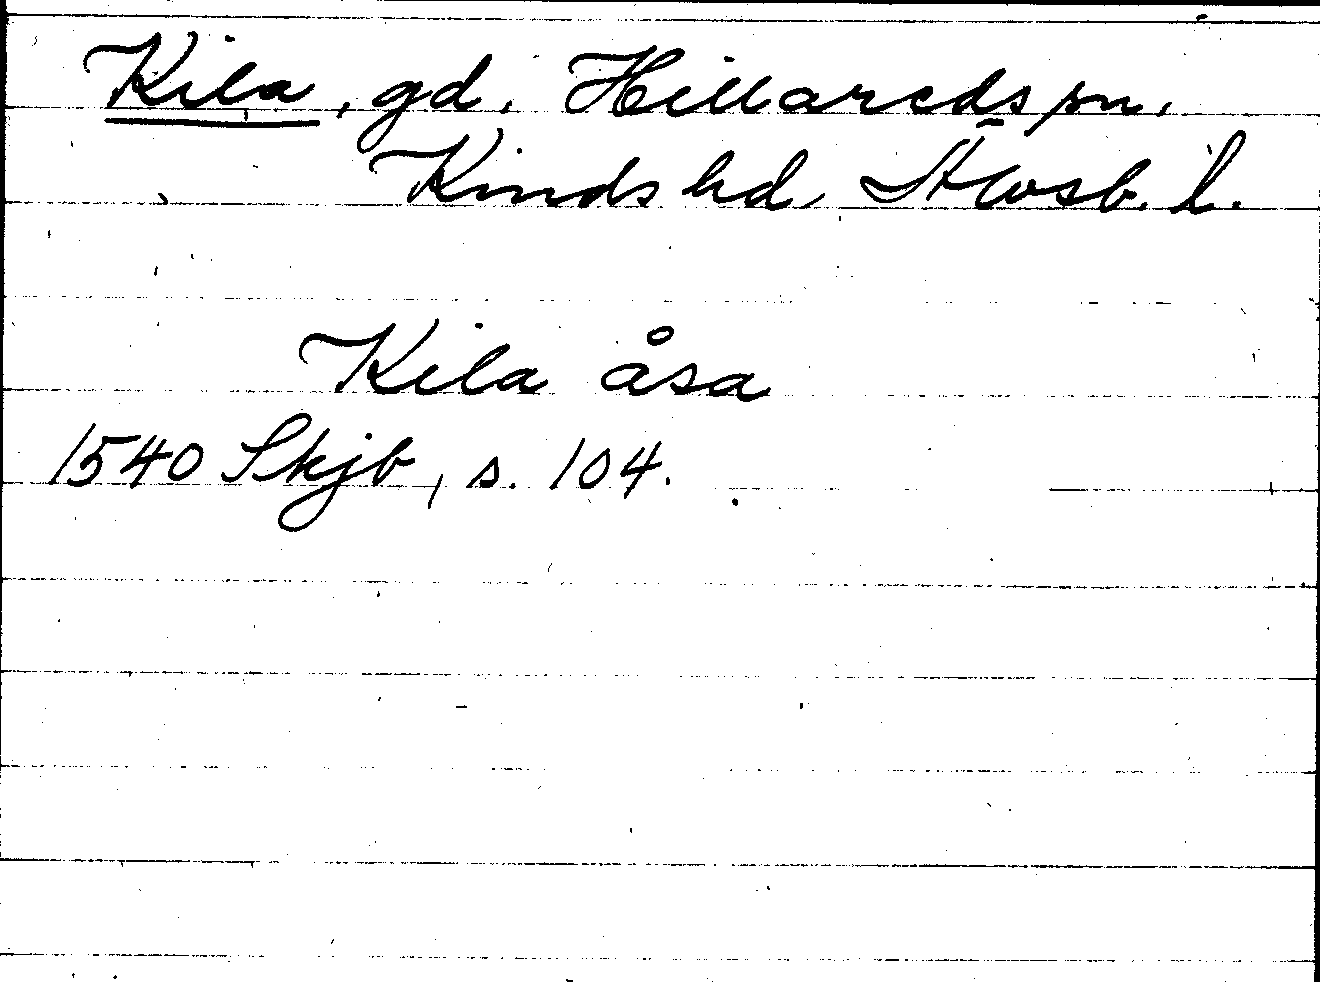 Kila, gd, Hillareds sn,
Kinds hd, Älvsb. l.
Kila åsa
1540 Skjb, s. 104.